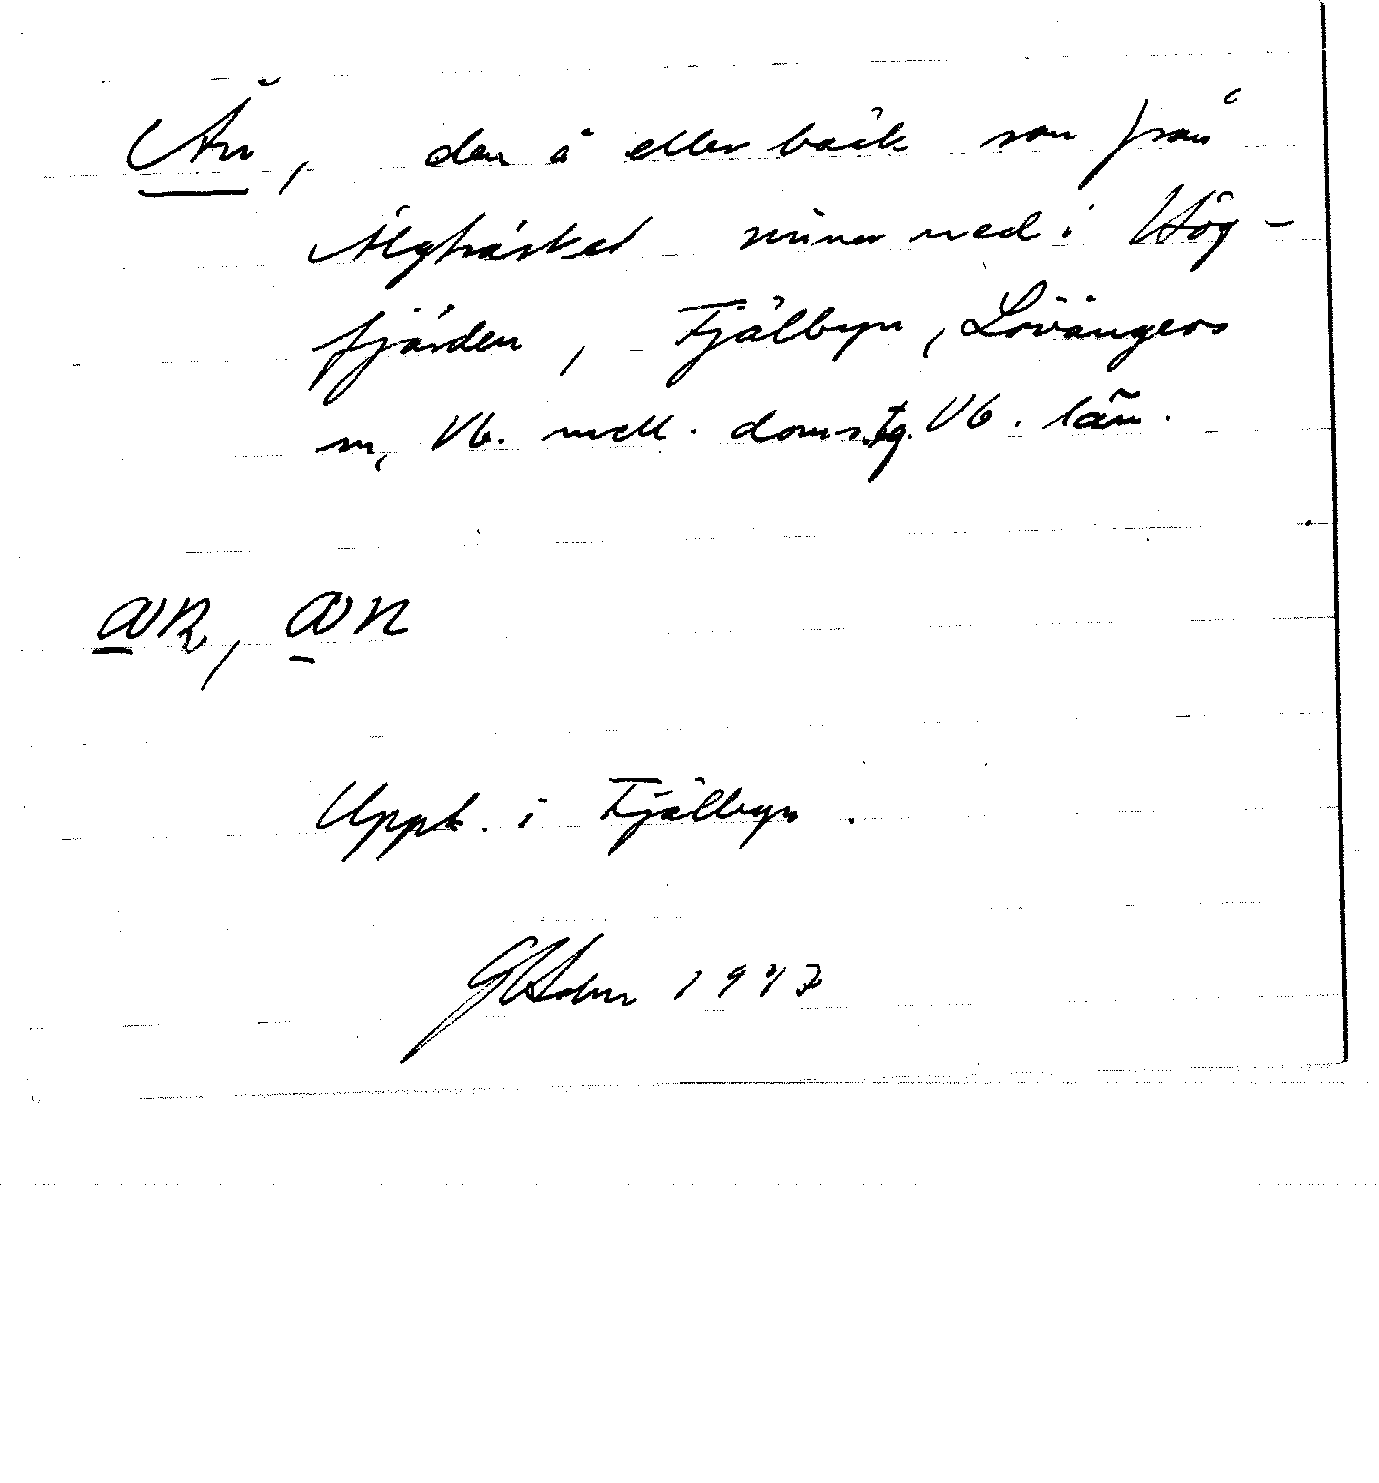 Ån, den å eller bäck som från
Älgträsket rinner ned i Hög-
fjärden, Fjälbyn, Lövångers
sn, Vb. mell. doms.tg. Vb. län.
Uppt. i Fjälbyn.
1947